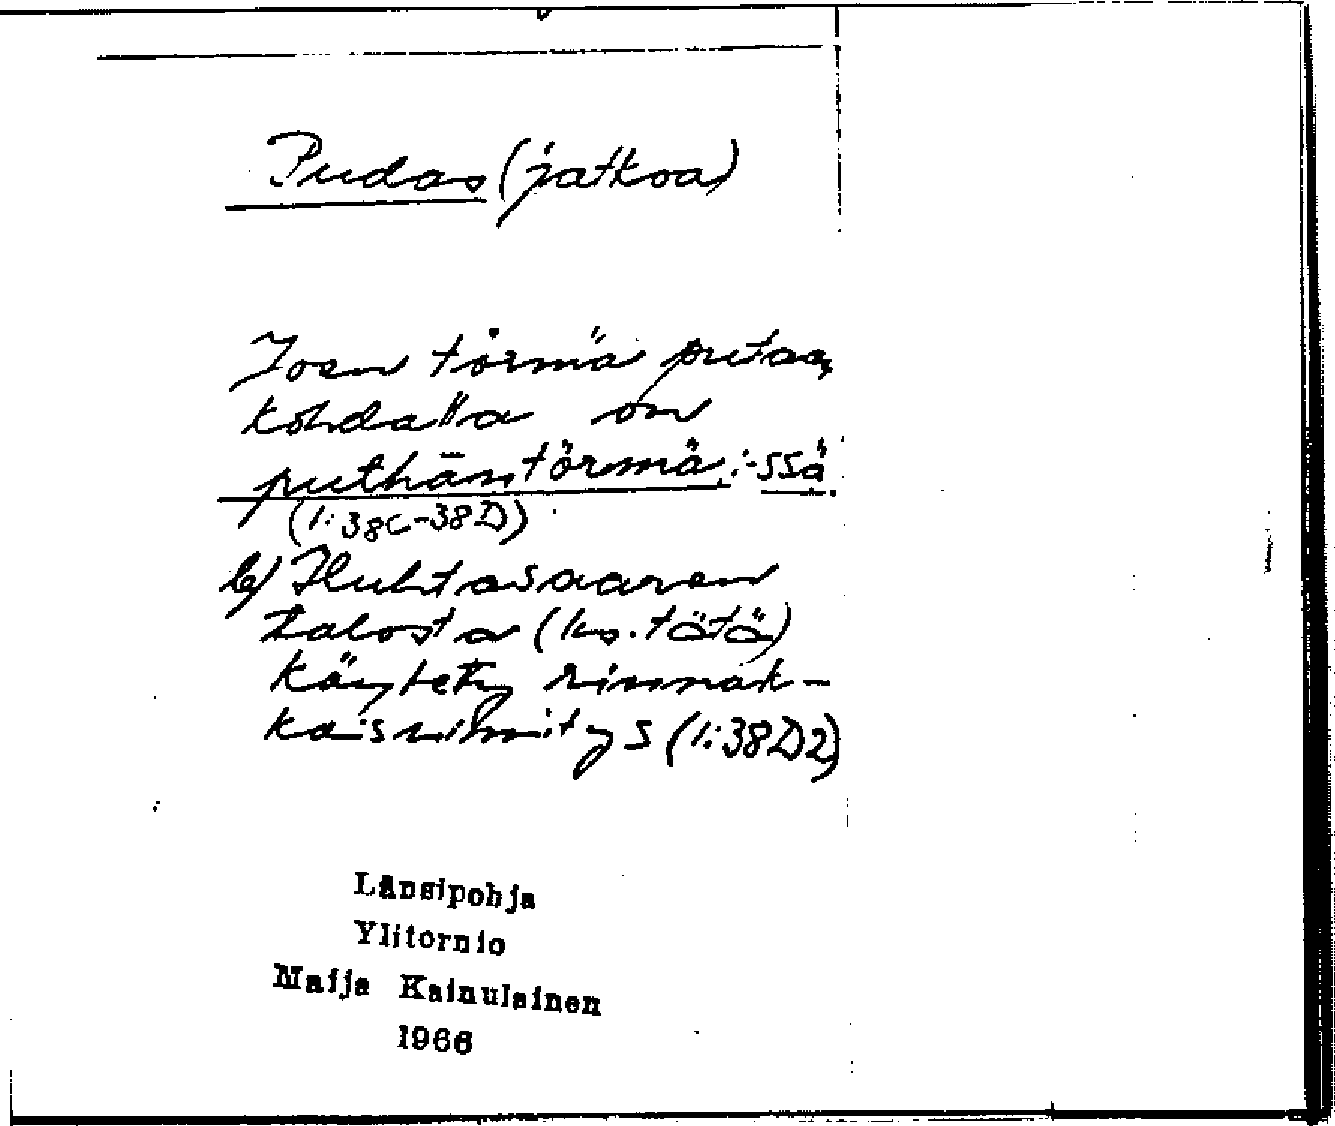 Pudas (jatkoa)
Joen törmä putaan
kohdalla on
puthāntörmä :-ssä.
(1:38C-38D)
b) Huhtasaaren
talosta (ks. tätä)
käytetty rinnak-
kaisnimitys (1:38D2)
Länsipohja
Ylitornio
Maija Kainulainen
1966